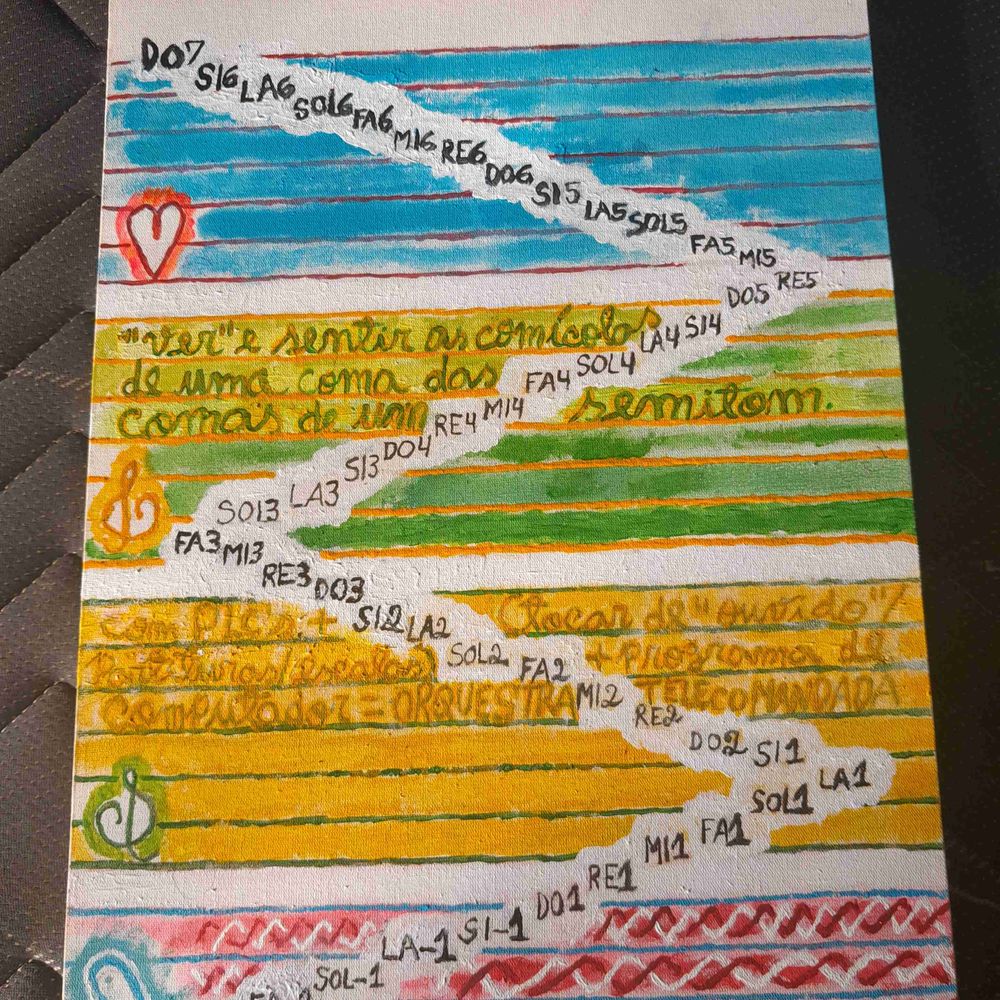 DO7
SI6
LA6
SOL6
FA6
MI6
RE6
DO6
SI5
LA5
SOL5
FA5
MI5
RE5
DO5
SI4
LA4
SOL4
FA4
MI4
RE4
DO4
SI3
LA3
SOl3
FA3
MI3
RE3
DO3
SI2
LA2
SOL2
FA2
MI2
RE2
DO2
SI1
LA1
SOL1
FA1
MI1
RE1
DO1
SI-1
LA-1
SOL-1
"ver" e sentir as comícolas
de uma coma das
comas de um semitom.
(tocar de "ouvido"/
com PICs +
Partituras/escalas) + programa de
computador = ORQUESTRA TELECOMANDADA